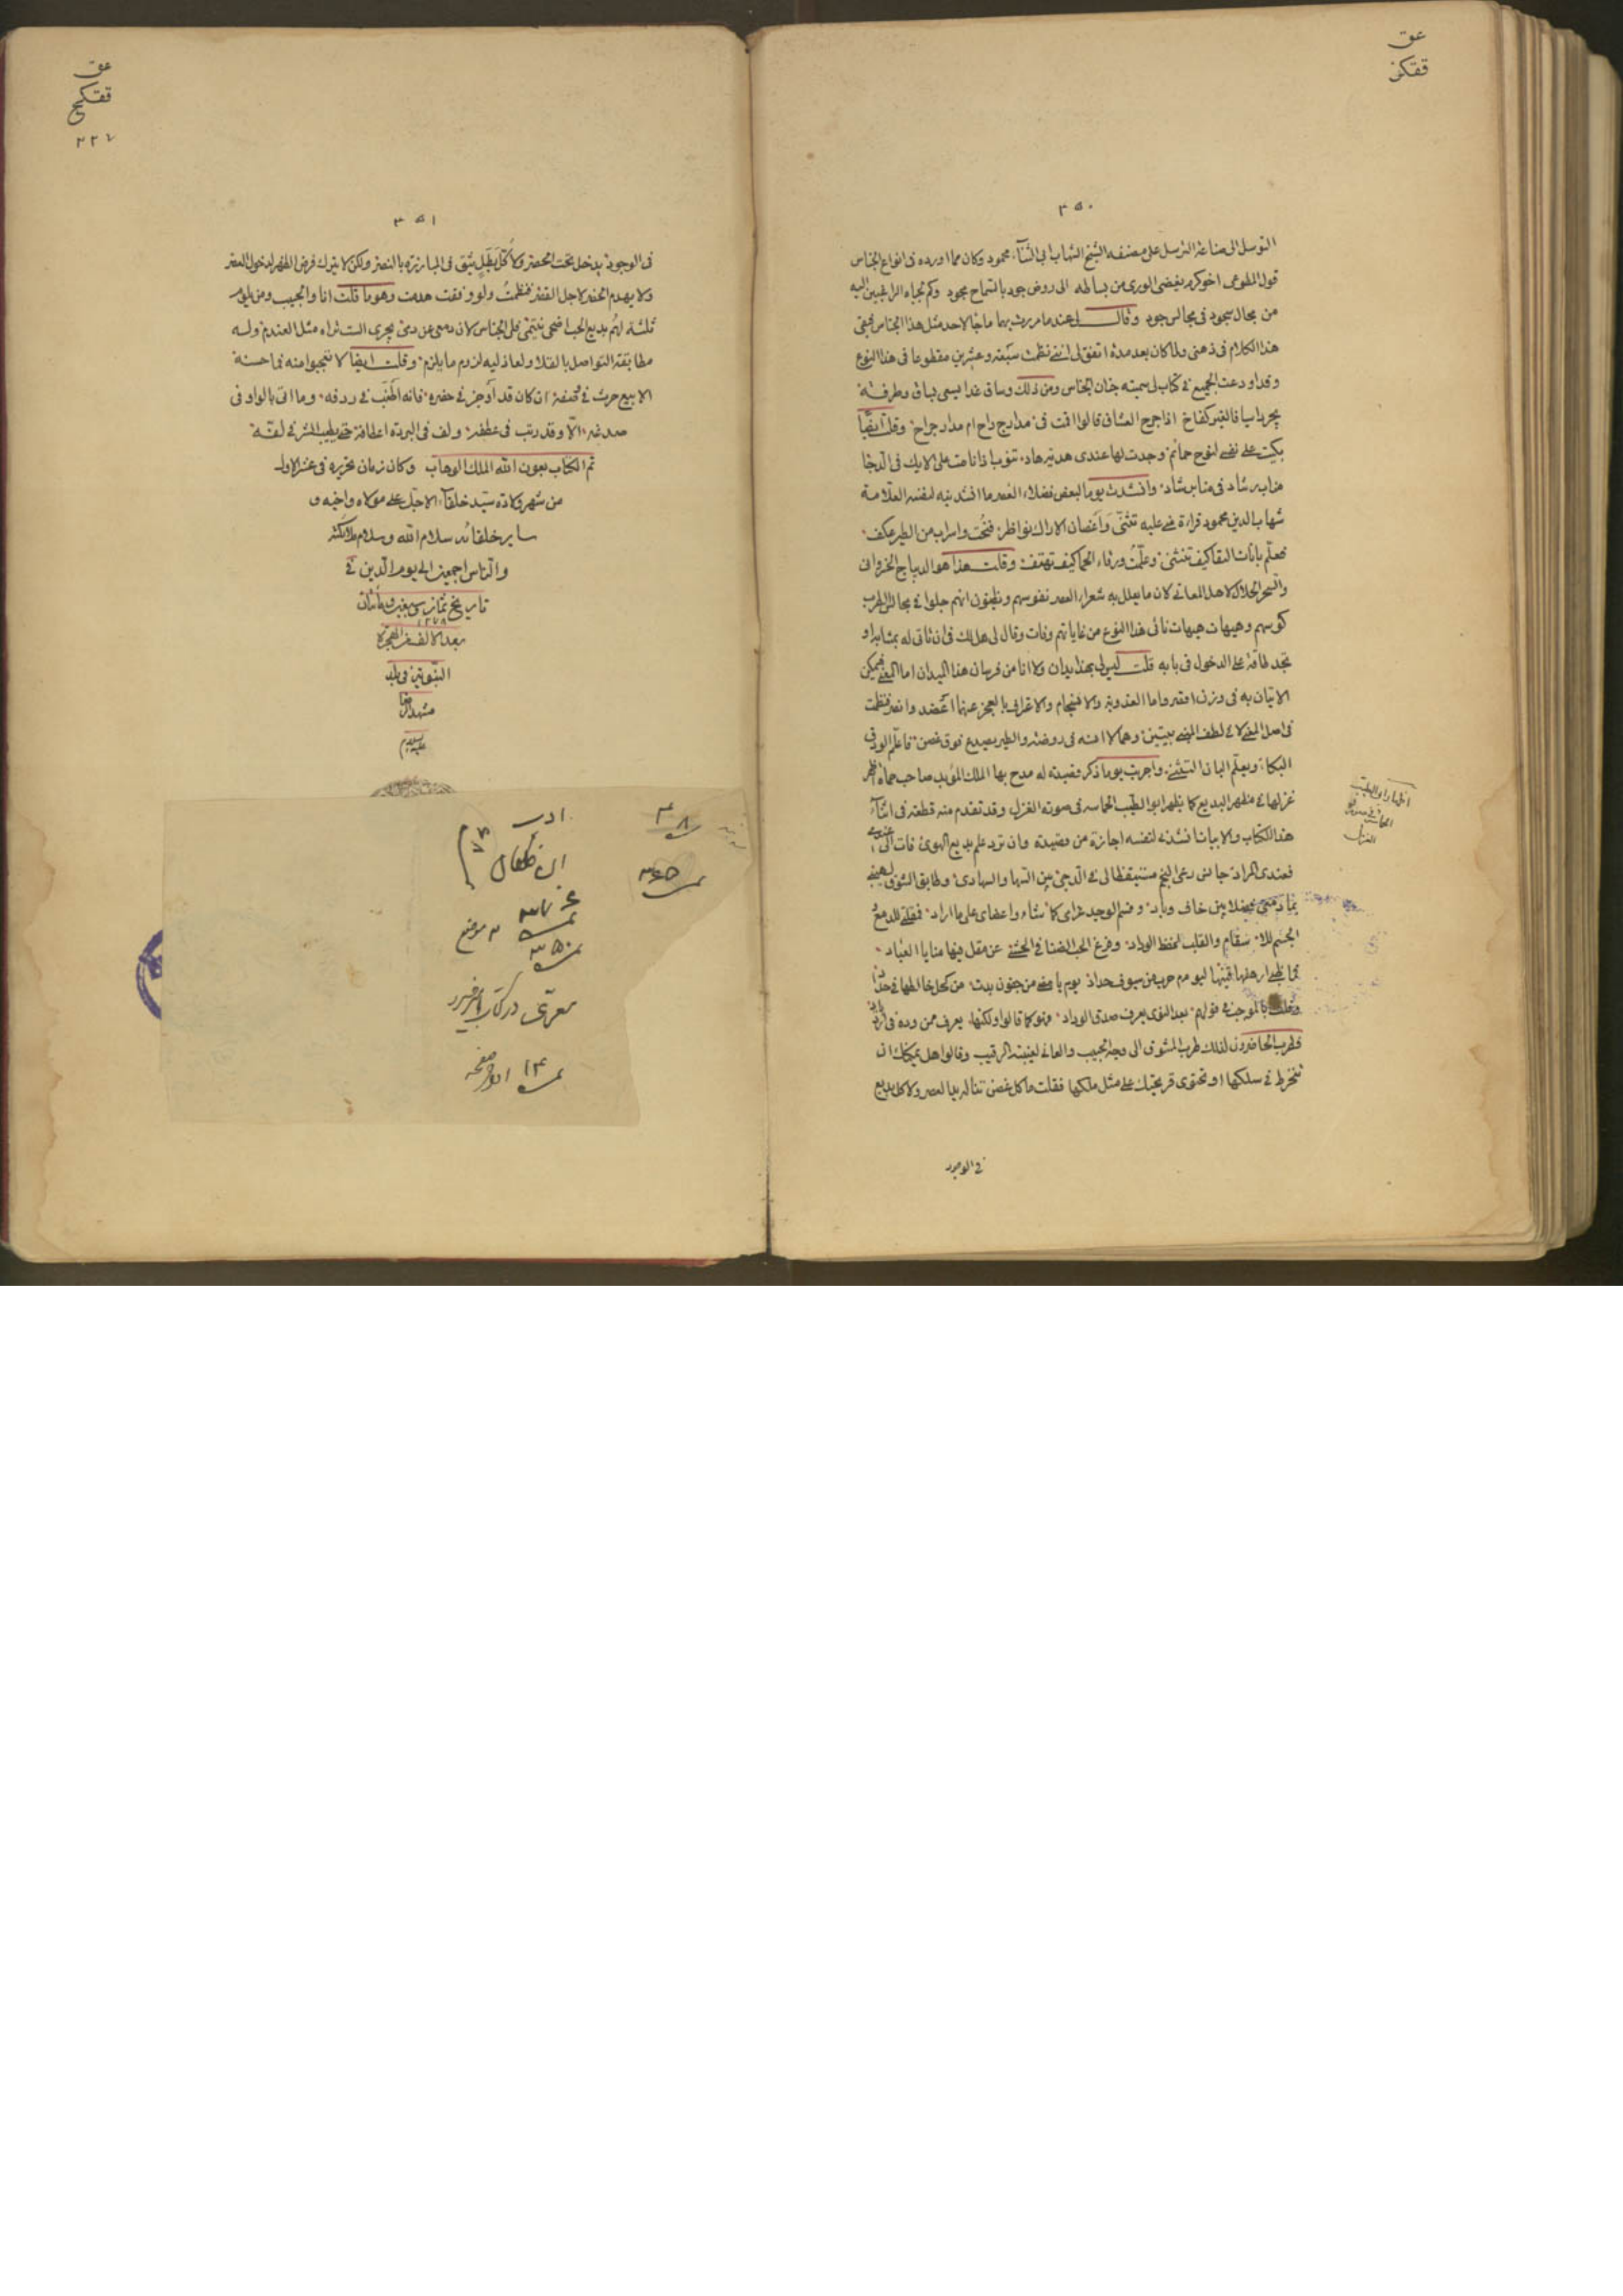 عق
ققكز
٣٥٠
التوسل الى صناعة الترسل على مصنفه الشيخ الشهاب ابى الثنآء محمود وكان مما اورده فى انواع الجناس
قول المطوعى اخو كرم يفضى الورى من بساطه الى روض جود بالسماح مجود وكم لجباه الراغبين اليه
من مجال سجود فى مجالس جود وقال لى عند ما مررت بهما ما جآ لاحد مثل هذا الجناس فبقى
هذا الكلام فى ذهنى ولما كان بعد مدة اتفق لى اننى نظمت سبعة وعشرين مقطوعا فى هذا النوع
وقد اودعت الجميع فى كتاب لى سميته جنان الجناس ومن ذلك وساق غدا يسعى بكاس وطرفه
يجرد اسيافا لغير كفاح اذا جرح العشاق قالوا اقمت فى مدارج راح ام مدار جراح وقلت ايضا
بكيت على نفسى لنوح حمائم وجدت لها عندى هدية هاد تنوب اذا ناحت على الايك فى الدجا
مناب رشاد فى منابر شاد وانشدت يوما لبعض فضلاء العصر ما انشدنيه لنفسه العلامة
شهاب الدين محمود قراءة منى عليه تثنّى وَاَغصان الاراك نواظر فنُحت واسراب من الطير عكف
فعلّم بانات النقا كيف تنثنى وعلّمتُ ورقاء الحما كيف تهتف وقلت هذا هو الديباج الخسروانى
والسحر الحلال لاهل المعانى لان ما يعلل به شعراء العصر نفوسهم ويظنون انهم جلوا فى مجالس الطرب
كوسهم وهيهات هيهات نائى هذا النوع من غاياتهم وفات وقال لى هل لك فى ان تاتى له بمشابه او
تجد طاقة على الدخول فى بابه قلت ليس لى بهذا يدان ولا انا من فرسان هذا الميدان اما المعنى فيمكن
الاتيان به فى وزن اقصر واما العذوبة والانسجام والاعتراف بالعجز عنهما اعضد وانصر فنظمت
فى اصل المعنى لا فى لطف المبنى بيتين وهما لا انسه فى روضة والطير يصدع فوق غصن فاعلّم الورق
البكاء ويعلّم البان التثنى واجريت يوما ذكر قصيدته له مدح بها الملك المؤيد صاحب حماة اظهر
غزلها فى مظهر البديع كما يظهر ابو الطيب الحماسه فى صورة الغزل وقد تقدم منه قطعة فى اثنآء
هذا الكتاب والابيات انشدنى لنفسه اجازة من قصيدة وان ترد علم بديع الهوى فات الىّ
فعندى المراد جانس رعى النجم مستيقظا لى فى الدجى بين السها والسهاد وطابق الشوق لهيبى
بماء دمعى بين خاف وباد وقسم الوجد غرامى كما شاء واعضاى على ما اراد فمقلتى للدمع
الجسم للاسقام والقلب لحفظ الوداد وفرع الحب الضنا فى الحشى عن مقل فيها منايا العباد
فما ظبى ارهفها قينها ليوم حرب من سيوف حداد يوم بامضى من جفون بدت من كحل خالطها فى حداد
وقلت بالموجب فى قولهم بعد النوى يعرف صدق الوداد وهو كما قالوا ولكنها يعرف ممن وده فى ازدياد
فطرب الحاضرون لذلك طرب المشوق الى وجه الحبيب والعانى لغيبة الرقيب وقالوا هل يمكنك ان
تنخرط فى سلكها او تحتوى قريحتك على مثل ملكها فقلت ما كل غصن تناله يد العصر ولا كل بديع
فى الوجود
اظهار ابو الطيب
الحماسة فى صورة
الغزل
عق
ققكح
٢٢٧
٣٥١
فى الوجود يدخل تحت الحصر ولا كُلّ بَطَلٍ يثق فى المبارزة بالنصر ولكن لا يترك فرض الظهر لدخول العصر
ولا يهدم الحضر لاجل القصر فنظمتُ ولو وفقت هدمت وهو ما قلت انا والحبيب ومن يلوم
ثلثة لهم بديع الحب اضحى ينتمى فلى الجناس لان دمعى عن دمى يجرى الست تراه مثل العندم وله
مطابقة التواصل بالقلا ولعاذليه لزوم ما يلزم وقلت ايضا لا تعجبوا منه فما حسنة
الا بيع حرت فى وصفه ان كان قد اَوجز فى خصره فانه اطنَب فى ردفه وما اتى بالواو فى
صدغه الّا وقد رتب فى عطفه ولف فى البردة اعطافه حتى يطيب النشر فى لفّه
تم الكتاب بعون الله الملك الوهاب وكان زمان تحريره فى عشر الاول
من شهر ولادة سيّد خلفآء الاجل على مولاه واخيه و
ساير خلفائه سلام الله وسلام ملائكته
والناس اجمعين الى يوم الدين فى
تاريخ ثمان سبعين ومأتان
١٢٧٨
بعد الالف من الهجرة
النبوية فى بلد
مشهد الرضا
عليه السلام
ادب
٣٠٨
٣٦٥
٣٥٠
موضع
معرى در كتاب
١٤